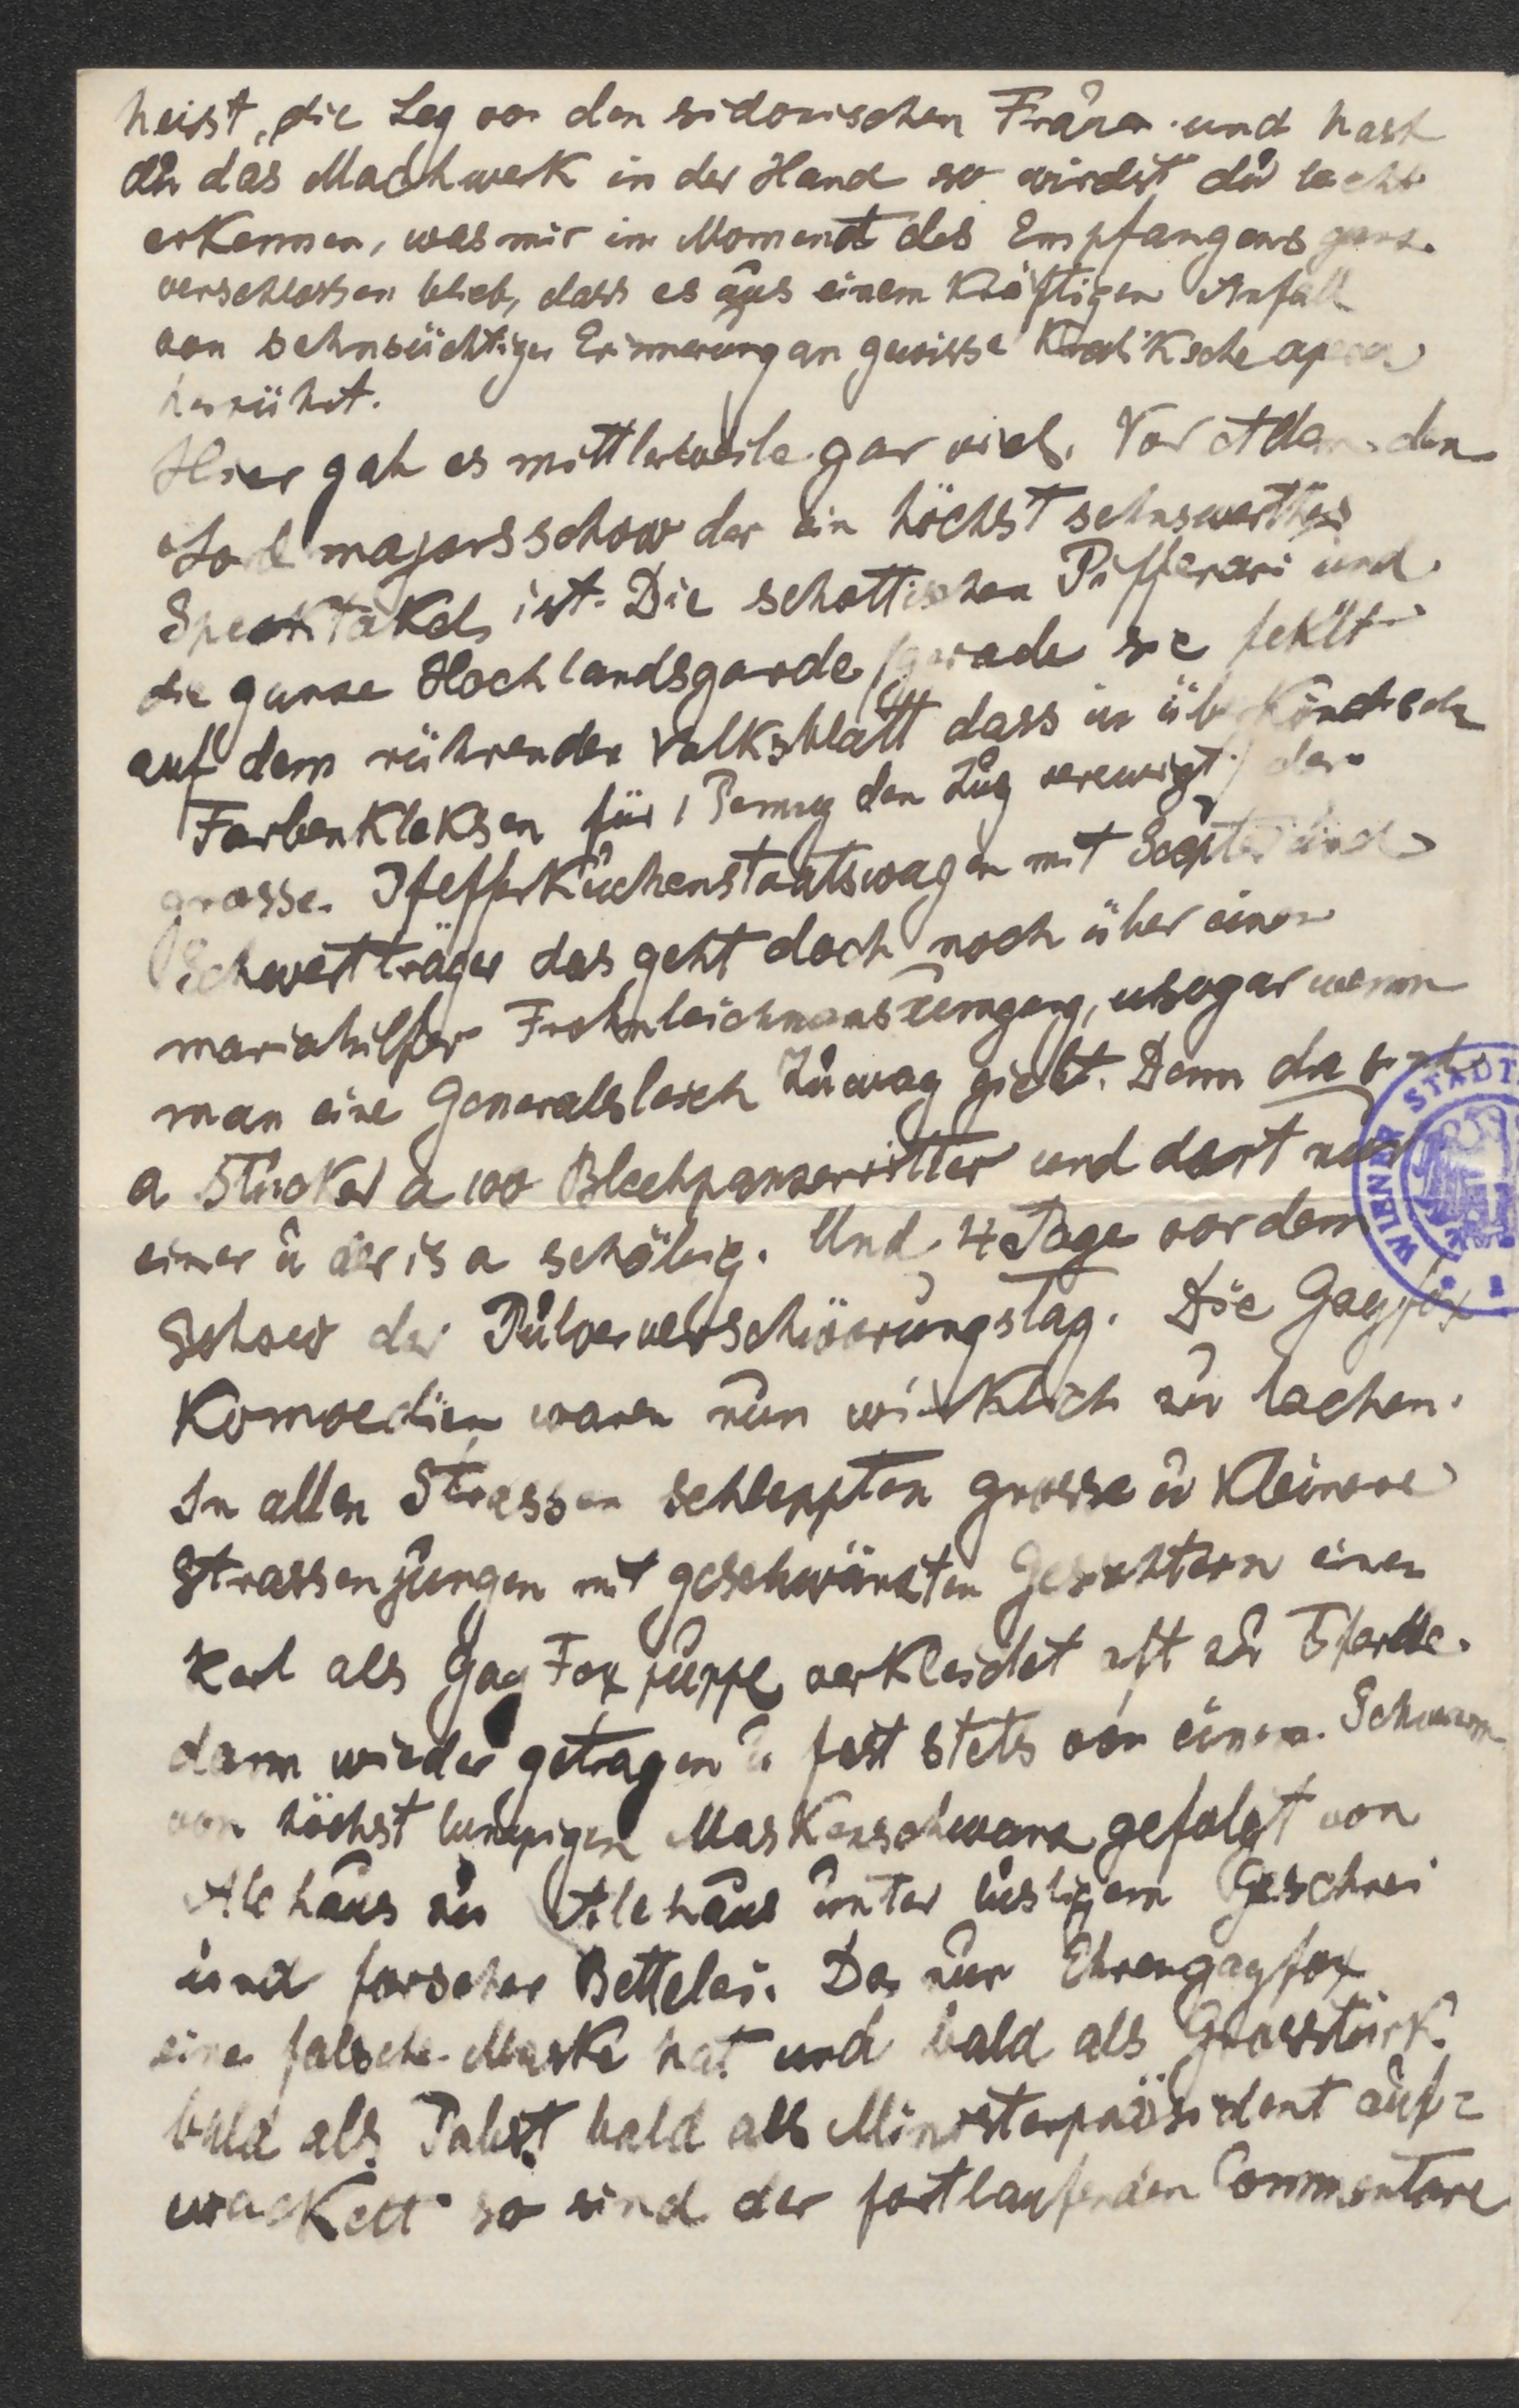 heisst, die Leg von den sidonischen Frauen und hast
du das Machwerk in der Hand so wirdst du leicht
erkennen, was mir im Moment des Empfangens ganz
verschlossen blieb, dass es aus einem kräftigen Anfall
von sehnsüchtiger Erinnerung an gewisse Kraliksche opera
herrührt.
Hier gab es mittlerweile gar viel. Vor Allem den
Lordmajorsschow der ein höchst sehnswerthes
Spektakel ist. Die schottischen Pifferari und
die ganze Hochlandsgarde (gerade sie fehlt
auf dem rührenden Volksblatt dass in überkindisch
Farbenkleksen für 1 Penny den Zug verewigt) der
grosse Pfefferkuchenstaatswagen mit Scepter und
Schwertträger das geht doch noch über einen
mariahilfer Frohnleichnamsumgang, sogar wenn
man eine Generalsleich Zuwag giebt. Denn da sind
a Stucker a 100 Blechpanzerritter und dort nur
einer u der is a schäbig. Und 4 Tage vor dem
Schow der Pulververschwörungstag. Die Gayfox
Komoedien waren nun wirklich zu lachen.
In allen Strassen schleppten grosse u kleinere
Strassenjungen mit geschwärzten Gesichtern einen
Kerl als Gay Fox puppe verkleidet oft zu Pferde.
dann wieder getragen u fast stets von einem Schwarm
von höchst lumpigen Maskenschwarm gefolgt von
Alehaus zu Alehaus unter lustigem Geschrei
und forscher Bettelei. Da nun Ehrengayfox
eine falsche Maske hat und bald als Grosstürk
bald als Pabst bald als Ministerpräsident auf=
wackelt so sind der fortlaufenden Commentare
WIENER STADT